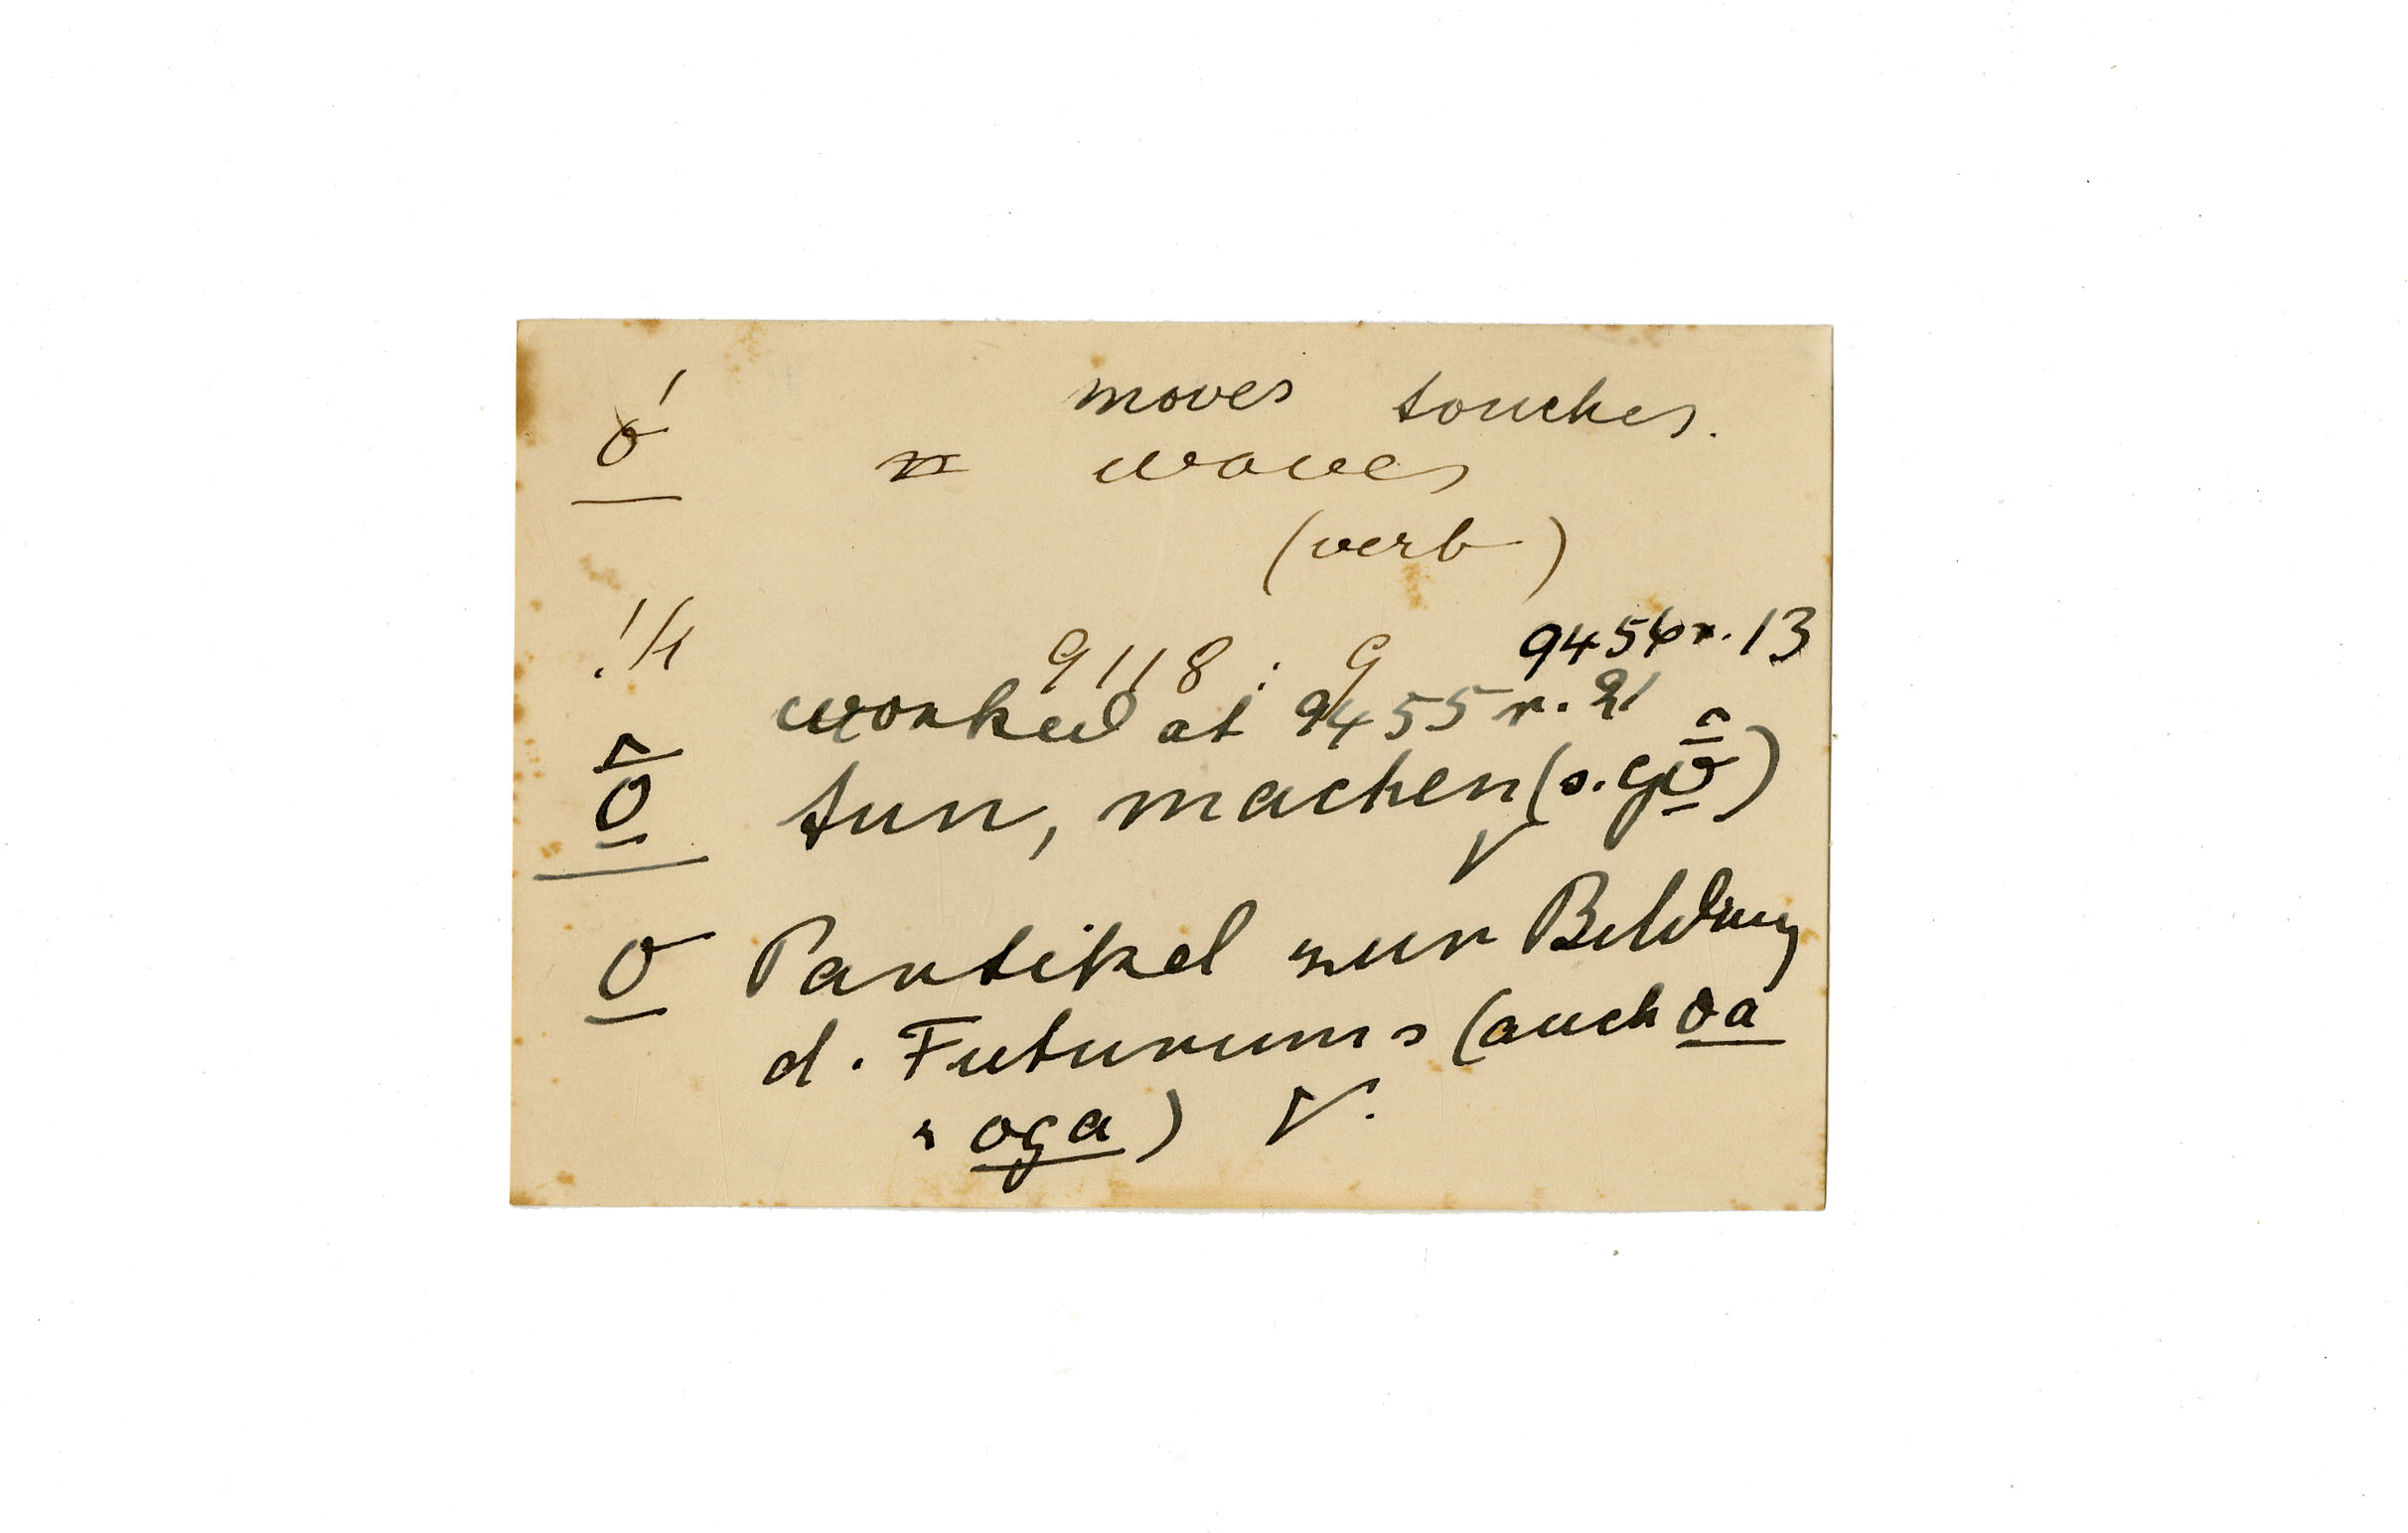 moves touches.
ó waves
(verb)
9118 : 9 9456 r. 13
worked at 9455 r. 21
ō̱̂ tun, machen (s. gō̱̂)
o̱ Partikel zur Bildung
d. Futurums (auch oa
oga) V.